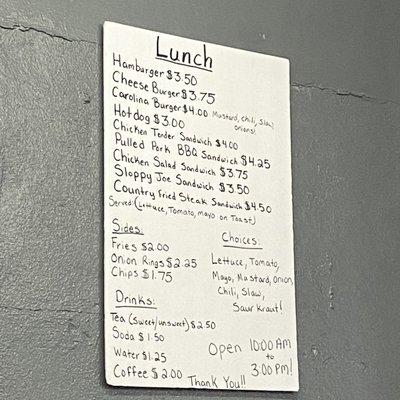 Lunch
Hamburger $3.50
Cheese Burger $3.75
Carolina Burger $4.00 Mustard, Chili, Slaw, onions!
Hotdog $3.00
Chicken Tender Sandwich $4.00
Pulled Pork BBQ Sandwich $4.25
Chicken Salad Sandwich $3.75
Sloppy Joe Sandwich $3.50
Country Fried Steak Sandwich $4.50
Served: (Lettuce, Tomato, mayo on Toast)
Sides:
Fries $2.00
Onion Rings $2.25
Chips $1.75
Choices:
Lettuce, Tomato,
Mayo, Mustard, Onion,
Chili, Slaw,
Saur Kraut!
Drinks:
Tea (Sweet/unsweet) $2.50
Soda $1.50
Water $1.25
Coffee $2.00
Open 10:00 AM
to
3:00 PM!
Thank You!!